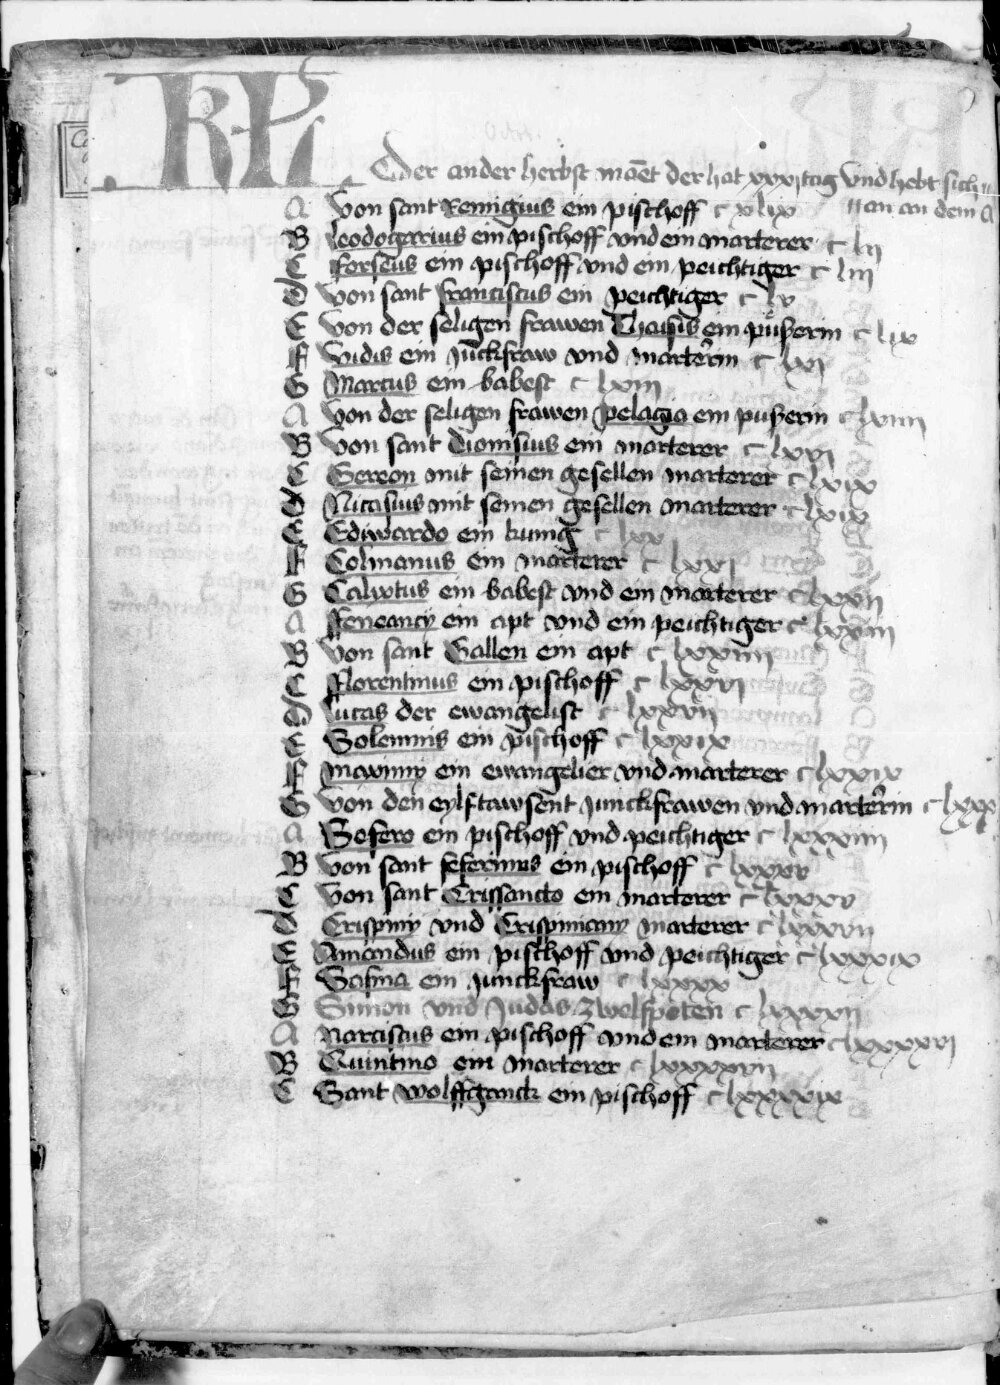 KL
Der ander herbst monet der hat xxxi tag vnd hebt sich
an an dem A
A von sant Remigius ein pischoff c xlix
B Leodogarius ein pischoff vnd ein marterer c lii
C Forseus ein pischoff vnd ein peichtiger c liii
D von sant franciscus ein peichtiger c lv
E von der seligen frawen Thaisis ein půßerin c lix
F Vidis ein junckfraw vnd marterin c lxi
G Marcus ein babest c lxiii
A von der seligen frawen pelagia ein pußerin c lxiiii
B von sant Dionisius ein marterer c lxvi
C Gereon mit seinen gesellen marterer c lxix
D Nicasius mit seinen gesellen marterer c lxix
E Ediwardo ein kunig c lxx
F Colmanus ein marterer c lxxi
G Calixtus ein babest vnd ein marterer c lxxii
A ein apt vnd ein peichtiger c lxxiii
B von sant Gallen ein apt c lxxiiii
C Florentinus ein pischoff c lxxvi
D Lucas der ewangelist c lxxvii
E Solemnis ein pischoff c lxxix
F maximy ein ewangelier vnd marterer c lxxix
G von den eylftawsent junckfrawen vnd marterin c lxxx
A Sefero ein pischoff vnd peichtiger c lxxxiiii
B von sant seferinus ein pischoff c lxxxv
C von sant Crissancto ein marterer c lxxxv
D Crispiny vnd Crispiniany marterer c lxxxvii
E Amandus ein pischoff vnd peichtiger c lxxxix
F Safina ein junckfraw c lxxxx
G Simon vnd Judas zwelfpoten c lxxxxii
A Narciscus ein pischoff vnd ein marterer c lxxxxvi
B Quintino ein marterer c lxxxxvii
C Sant wolffganck ein pischoff c lxxxxix